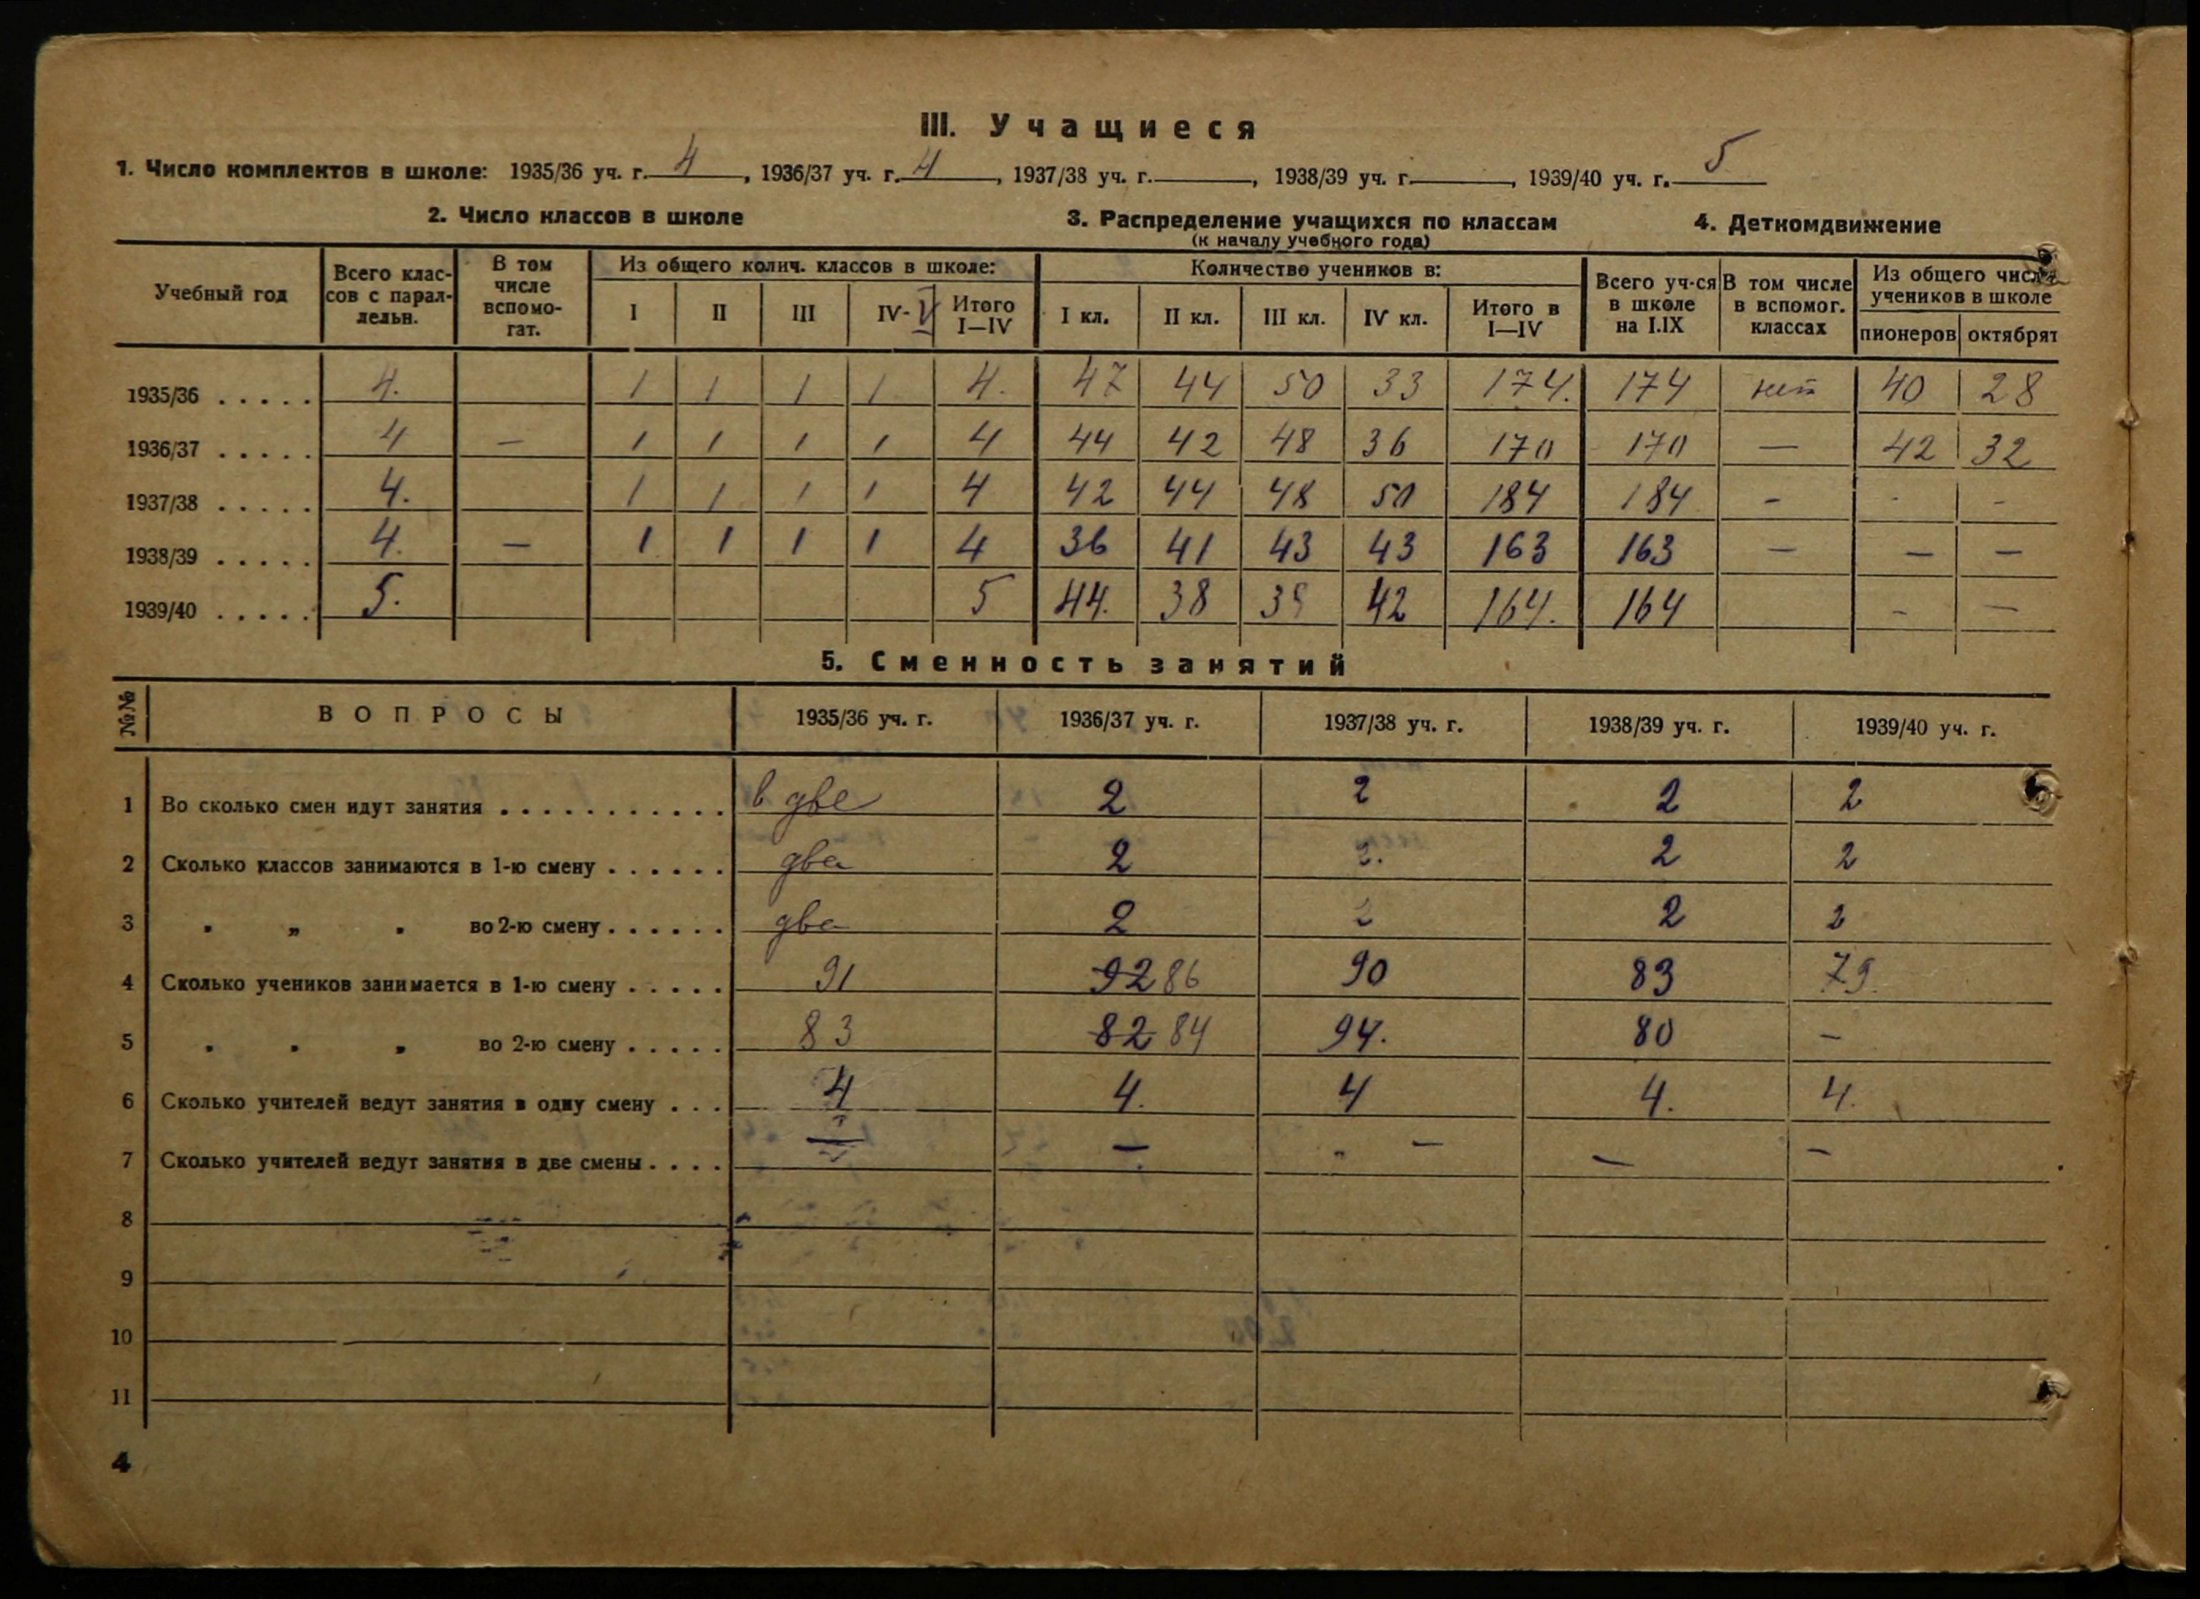 III. Учащиеся
1. Число комплектов в школе: 1935/36 уч. г. 4, 1936/37 уч. г. 4, 1937/38 уч. г. , 1938/39 уч. г. , 1939/40 уч. г. 5
2. Число классов в школе 3. Распределение учащихся по классам 4. Деткомдвижение
(к началу учебного года)
Учебный год Всего клас- сов с парал- лельн. В том числе вспомо- гат. Из общего колич. классов в школе: Количество учеников в: Всего уч-ся в школе на I.IX В том числе в вспомог. классах Из общего числа учеников в школе
I II III IV-V Итого I—IV I кл. II кл. III кл. IV кл. Итого в I—IV пионеров октябрят
1935/36 . . . . . 4. 1 1 1 1 4. 47 44 50 33 174. 174 нет 40 28
1936/37 . . . . . 4 — 1 1 1 1 4 44 42 48 36 170 170 — 42 32
1937/38 . . . . . 4. 1 1 1 1 4 42 44 48 50 184 184 - - -
1938/39 . . . . . 4. — 1 1 1 1 4 36 41 43 43 163 163 — — —
1939/40 . . . . . 5. 5 44. 38 39 42 164. 164 - —
5. Сменность занятий
№№ ВОПРОСЫ 1935/36 уч. г. 1936/37 уч. г. 1937/38 уч. г. 1938/39 уч. г. 1939/40 уч. г.
1 Во сколько смен идут занятия . . . . . . . . . . . в две 2 2 2 2
2 Сколько классов занимаются в 1-ю смену . . . . . . два 2 2. 2 2
3 " " " во 2-ю смену . . . . . . два 2 2 2 2
4 Сколько учеников занимается в 1-ю смену . . . . . 91 92 86 90 83 79.
5 " " " во 2-ю смену . . . . . 83 82 84 94. 80 —
6 Сколько учителей ведут занятия в одну смену . . . 4 4. 4 4. 4.
7 Сколько учителей ведут занятия в две смены . . . . — — - — — —
8
9
10
11
4